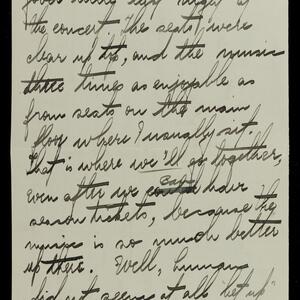 the concert. The seats were
clear up top, and the music
three times as enjoyable as
from seats on the main
floor where I usually sit.
That is where we'll go together,
even after we can have
season tickets, because the
music is so much better
up there. Well, human
did not seem at all "het up"